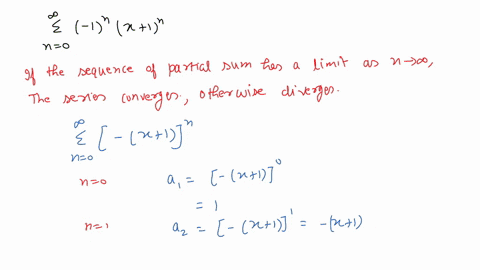 ∞
Σ (-1)ⁿ (x+1)ⁿ
n=0
If the sequence of partial sum has a limit as n→∞,
The series converges, otherwise diverges.
∞
Σ [-(x+1)]ⁿ
n=0
n=0 a₁ = [-(x+1)]⁰
= 1
n=1 a₂ = [-(x+1)]¹ = -(x+1)